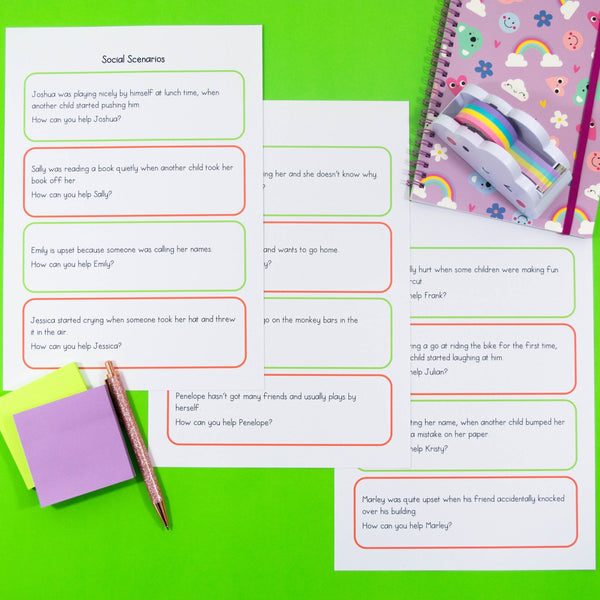 Social Scenarios
Joshua was playing nicely by himself at lunch time, when
another child started pushing him.
How can you help Joshua?
Sally was reading a book quietly when another child took her
book off her
How can you help Sally?
Emily is upset because someone was calling her names.
How can you help Emily?
Jessica started crying when someone took her hat and threw
it in the air.
How can you help Jessica?
her and she doesn't know why
?
and wants to go home.
?
go on the monkey bars in the
Penelope hasn't got many friends and usually plays by
herself
How can you help Penelope?
hurt when some children were making fun
help Frank?
a go at riding the bike for the first time,
child started laughing at him.
help Julian?
her name, when another child bumped her
a mistake on her paper.
help Kristy?
Marley was quite upset when his friend accidentally knocked
over his building
How can you help Marley?